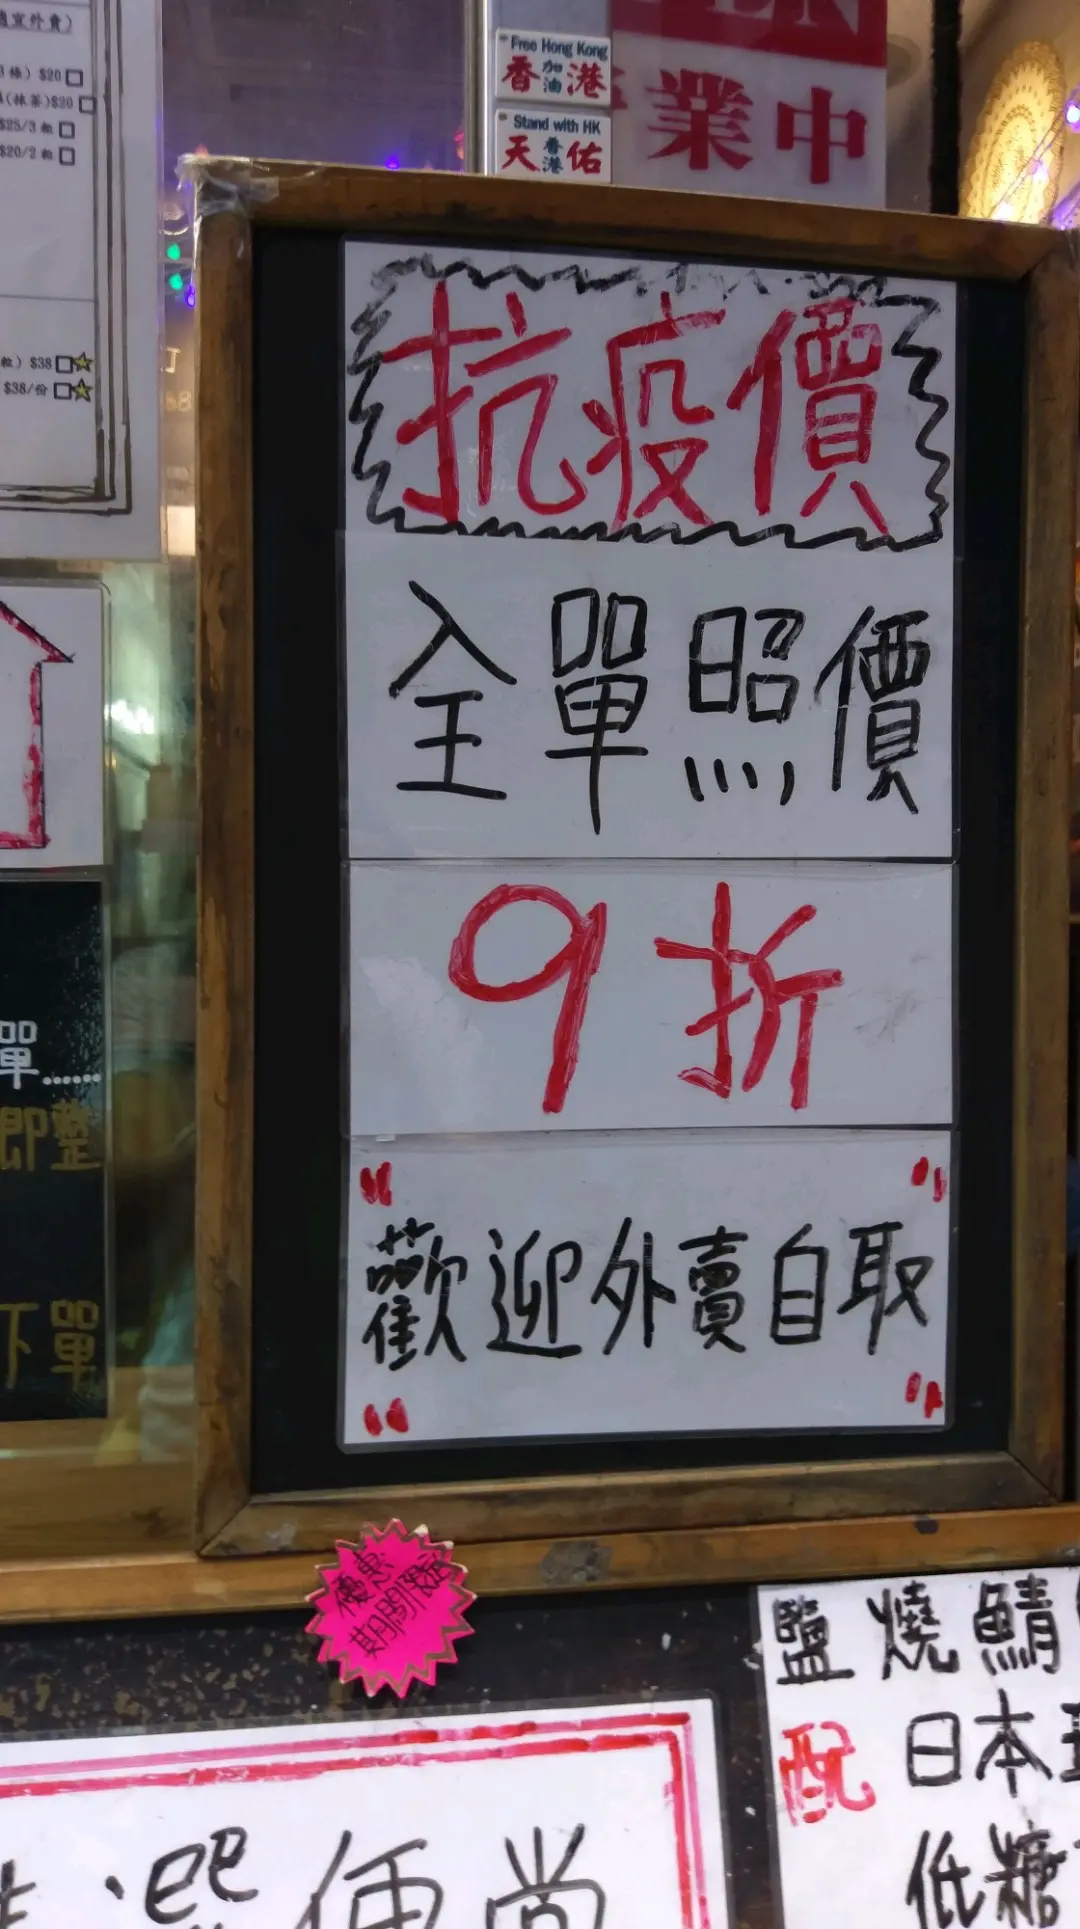 宜外賣)
條) $20
(抹茶)$20
$25/3粒
$20/2粒
粒) $38
$38/份
Free Hong Kong
香加油港
Stand with HK
天香港佑
業中
抗疫價
全單照價
9折
"歡迎外賣自取"
單......
即整
下單
優惠
期間限定
鹽燒鯖
配 日本
低糖
選便當